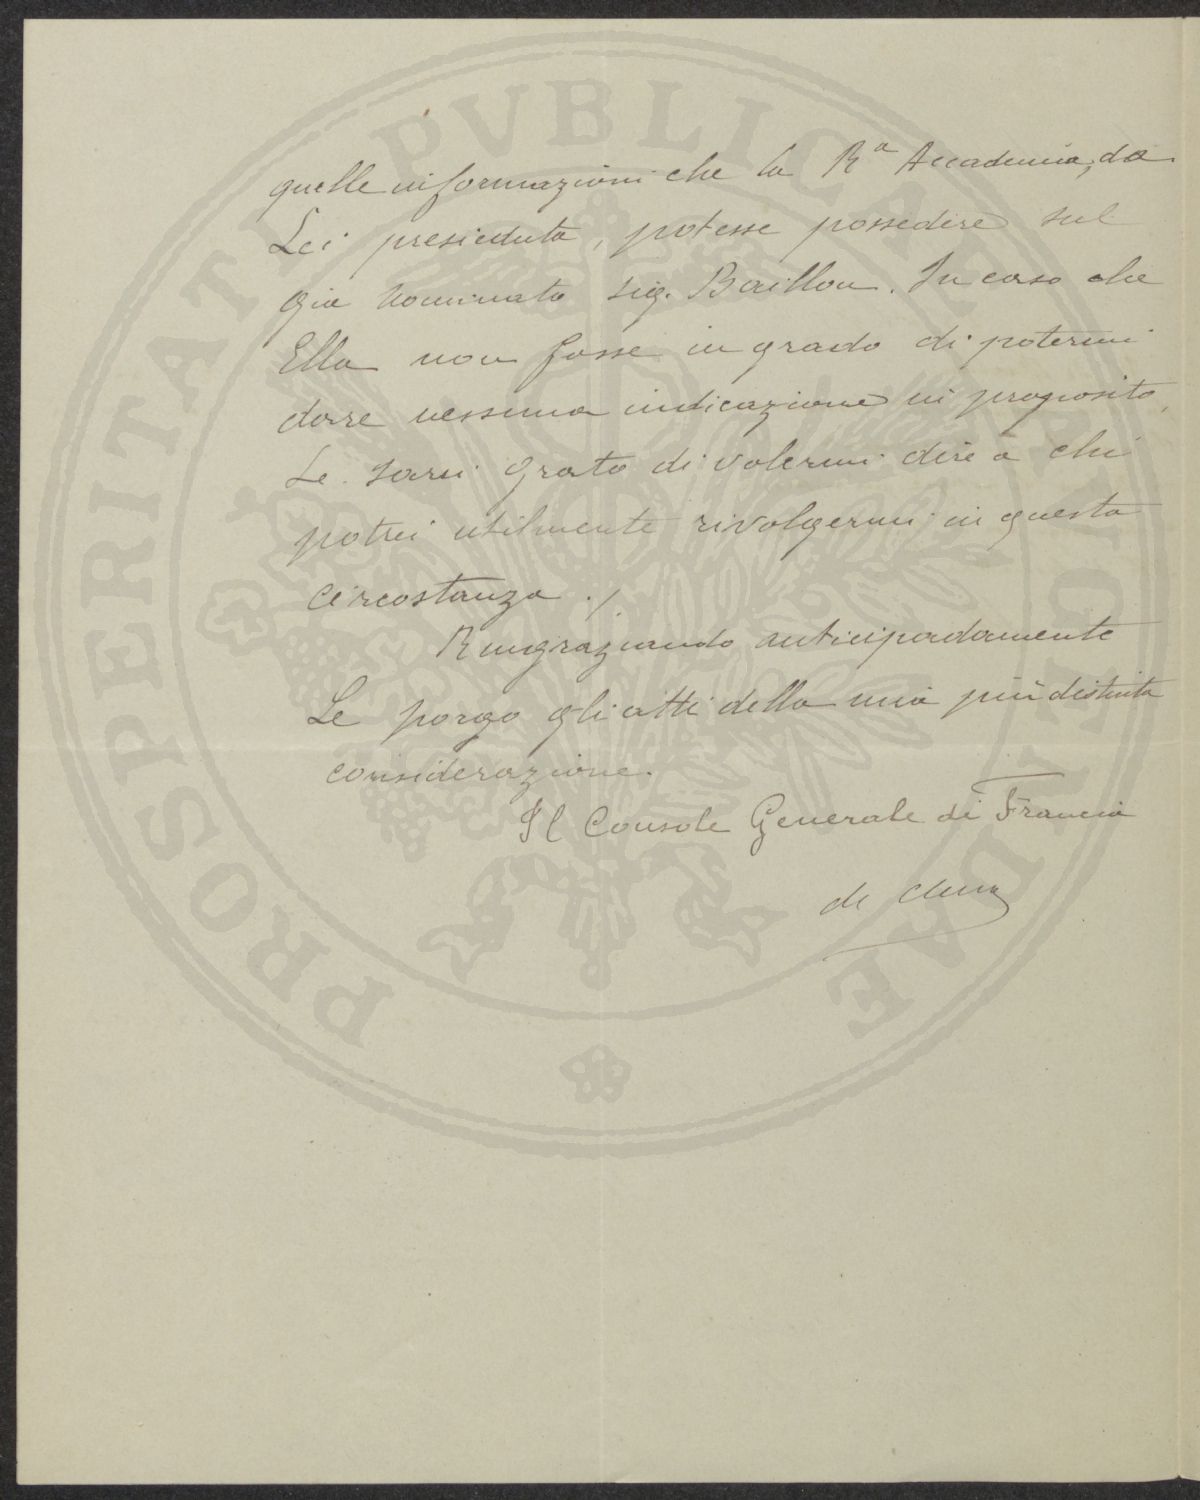 quelle informazioni che la Rª Accademia, da
Lei presieduta, potesse possedere sul
già nominato sig. Baillou. In caso che
Ella non fosse in grado di potermi
dare nessuna indicazione in proposito,
Le sarei grato di volermi dire a chi
potrei utilmente rivolgermi in questa
circostanza ./
Ringraziando anticipadamente
Le porgo gli atti della mia più distinta
considerazione.
Il Console Generale di Francia
de
PROSPERITATI PVBLICAE AVGENDAE